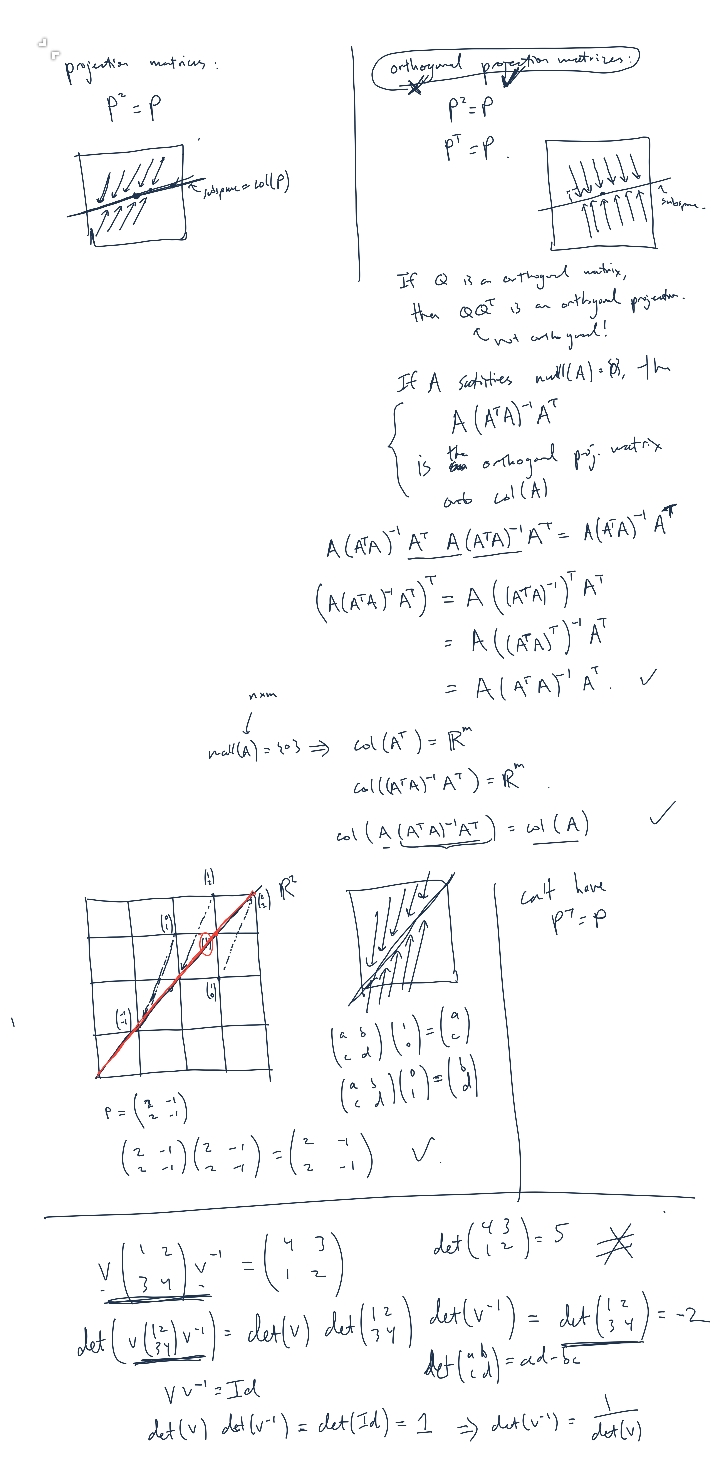 projection matrices:
P² = P
subspace = col(P)
orthogonal projection matrices:
P² = P
Pᵀ = P.
subspace.
If Q is a orthogonal matrix,
then QQᵀ is an orthogonal projection.
not orthogonal!
If A satisfies null(A) = {0}, then
A(AᵀA)⁻¹Aᵀ
is the orthogonal proj. matrix
onto col(A)
A(AᵀA)⁻¹Aᵀ A(AᵀA)⁻¹Aᵀ = A(AᵀA)⁻¹Aᵀ
(A(AᵀA)⁻¹Aᵀ)ᵀ = A((AᵀA)⁻¹)ᵀAᵀ
= A((AᵀA)ᵀ)⁻¹Aᵀ
= A(AᵀA)⁻¹Aᵀ. ✓
n×m
null(A) = {0} ⇒ col(Aᵀ) = ℝᵐ
col((AᵀA)⁻¹Aᵀ) = ℝᵐ.
col(A(AᵀA)⁻¹Aᵀ) = col(A) ✓
(1 2)
ℝ²
(2 2)
(0 1)
(1 1)
(1 0)
(-1 -1)
can't have
Pᵀ = P
(a b; c d)(1; 0) = (a; c)
(a b; c d)(0; 1) = (b; d)
P = (2 -1; 2 -1)
(2 -1; 2 -1)(2 -1; 2 -1) = (2 -1; 2 -1) ✓.
V(1 2; 3 4)V⁻¹ = (4 3; 1 2)
det(4 3; 1 2) = 5
det(V(1 2; 3 4)V⁻¹) = det(V) det(1 2; 3 4) det(V⁻¹) = det(1 2; 3 4) = -2
det(a b; c d) = ad-bc
VV⁻¹ = Id
det(V) det(V⁻¹) = det(Id) = 1 ⇒ det(V⁻¹) = 1/det(V)